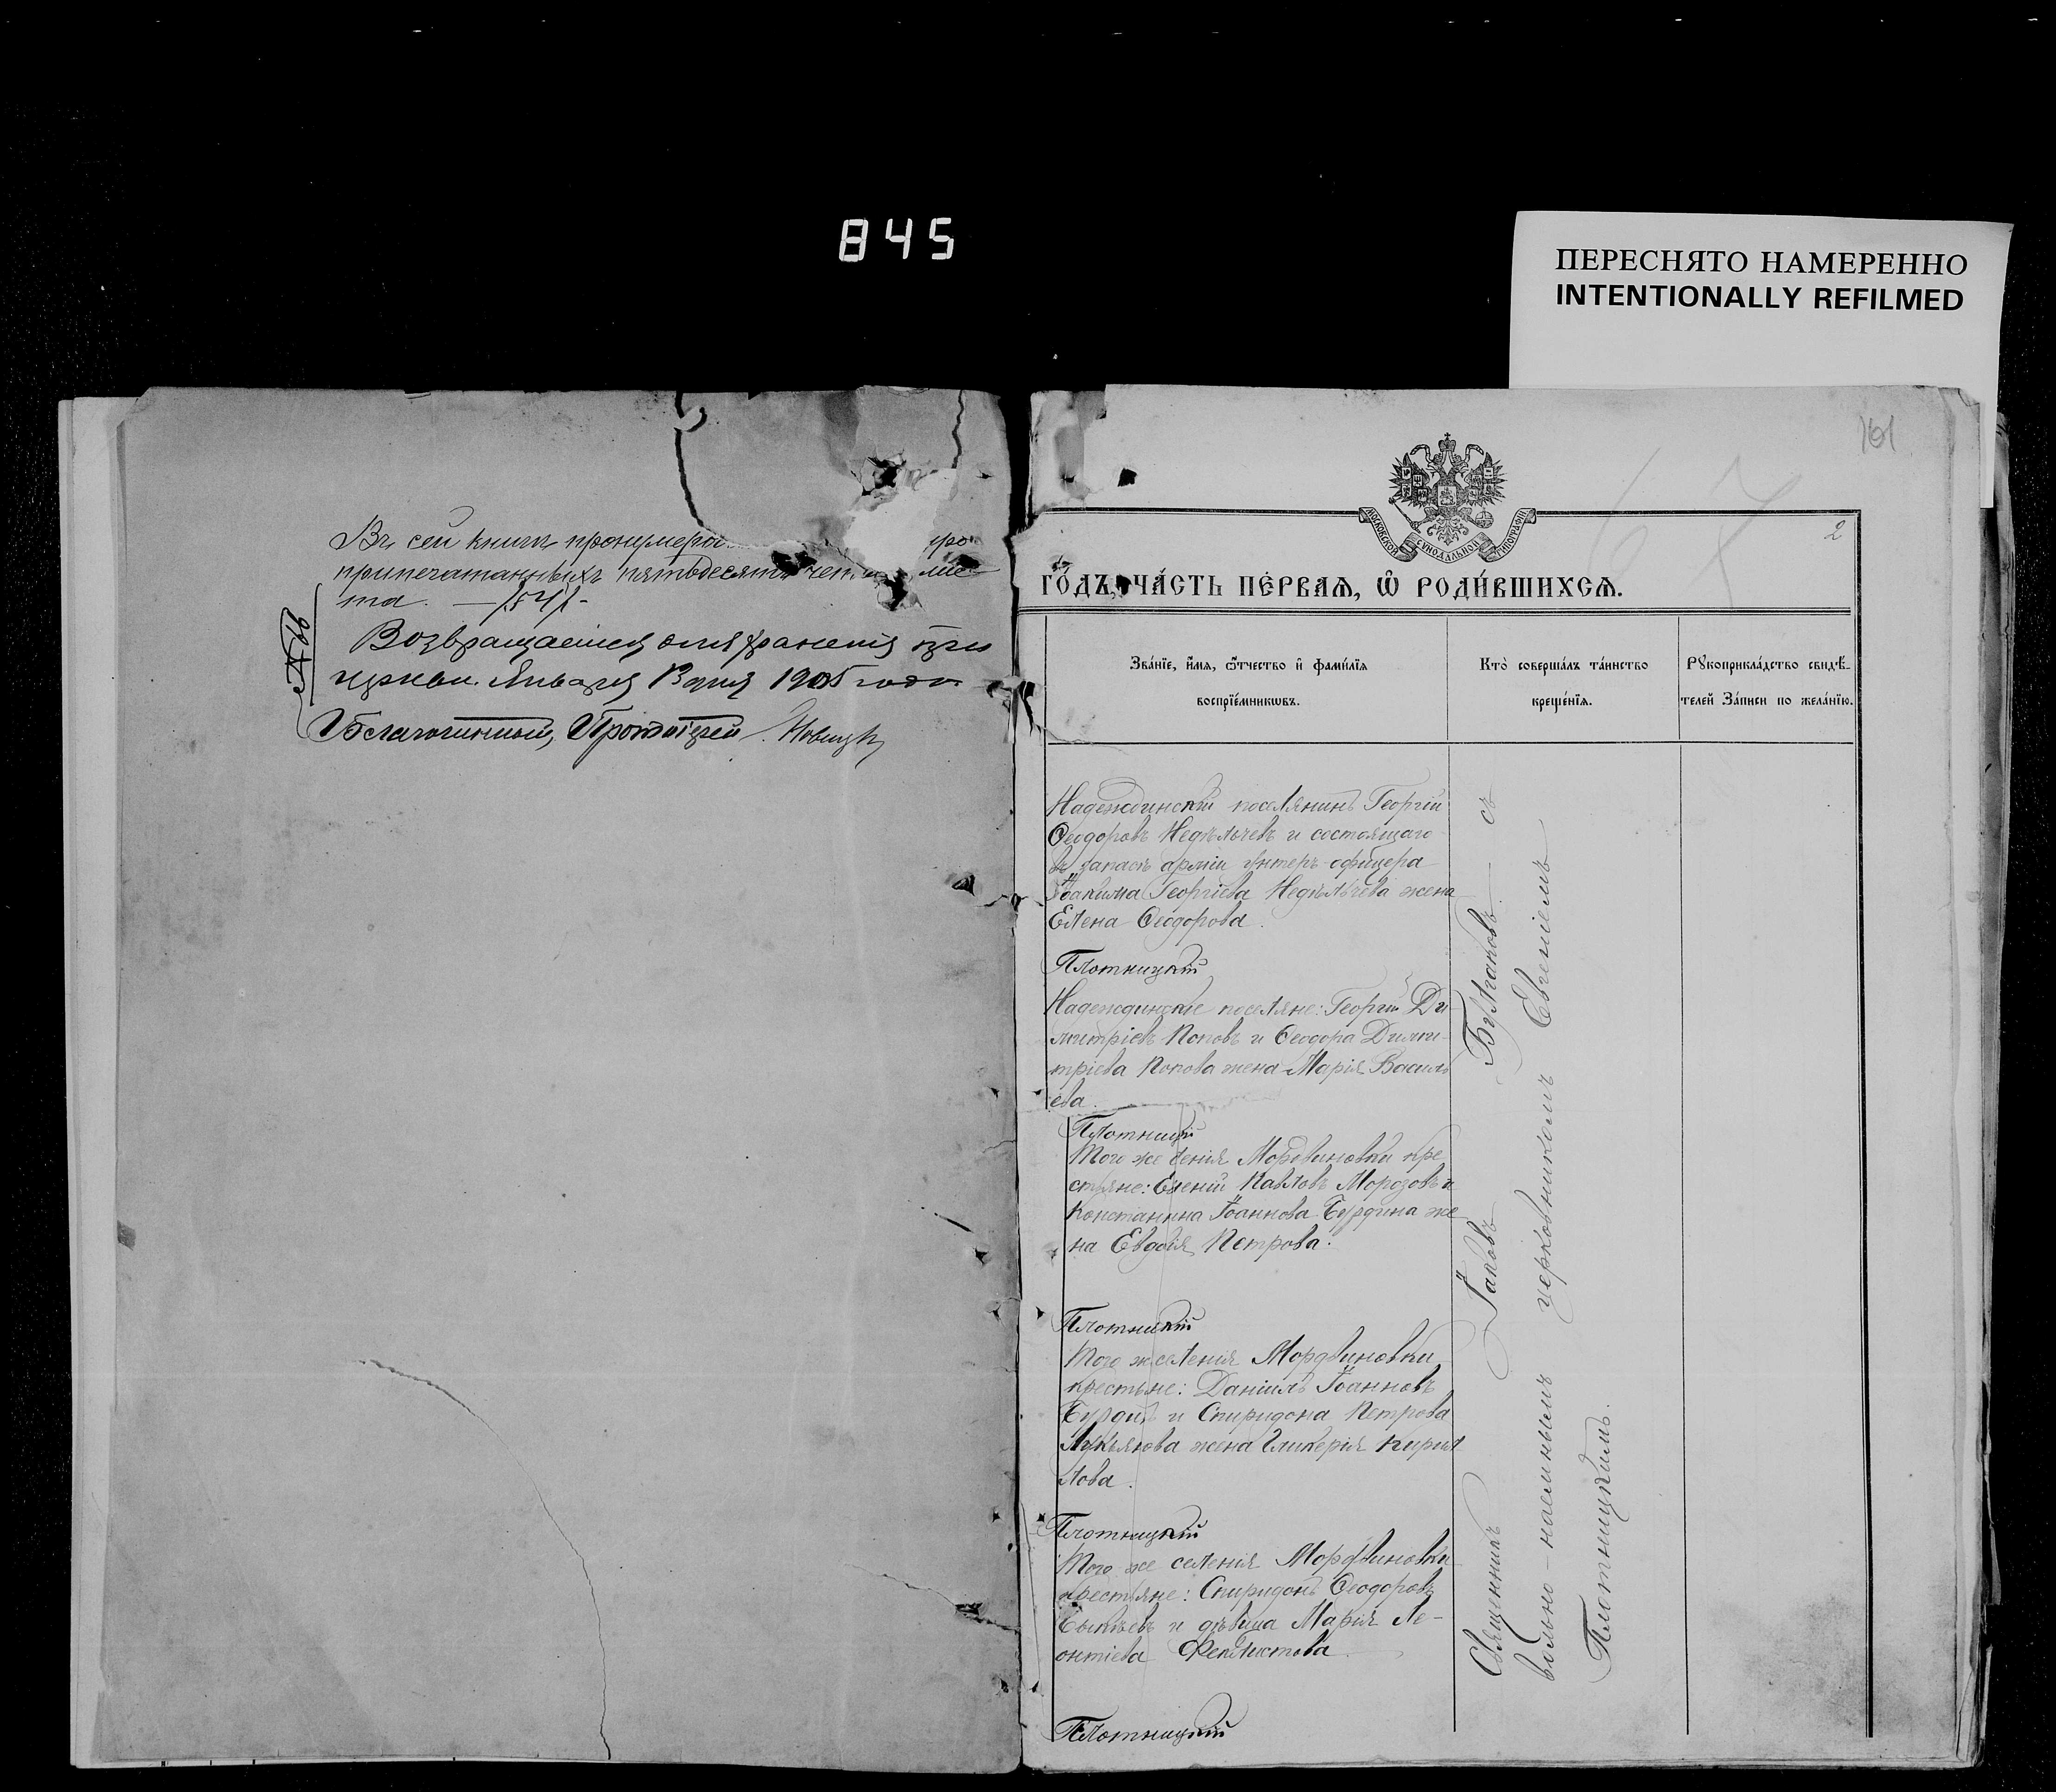 845
ПЕРЕСНЯТО НАМЕРЕННО
INTENTIONALLY REFILMED
Въ сей книгѣ пронумеро
припечатанныхъ пятьдесятъ четы лис
та. — /54/ -
Возвращается для храненія при
церкви. Января 13 дня 1905 года
№ 66
Благочинный, Протоіерей Новицк
161
67
2
МОСКОВСКОЙ СѴНОДАЛЬНОЙ ТИПОГРАФІИ
ГО́ДЪ, ЧА́СТЬ ПЕ́РВАѦ, Ѡ҆ РОДИ́ВШИХСѦ.
Зва́нїе, и҆́мѧ, ѻ҆́тчество и҆ фами́лїѧ
воспрїе́мникѡвъ.
Кто̀ соверша́лъ та́инство
креще́нїѧ.
Рꙋкоприкла́дство свидѣ́-
телей За́писи по жела́нїю.
Надеждинскій поселянинъ Георгій
Ѳеодоровъ Недѣльчевъ и состоящаго
въ запасѣ арміи унтеръ-офицера
Іоакима Георгіева Недѣльчева жена
Елена Ѳеодорова.
Плотницкій
Надеждинскіе поселяне: Георгій Ди-
митріевъ Поповъ и Ѳеодора Дими-
тріева Попова жена Марія Василь
ева.
Плотницкій
Того же селенія Мордвиновки кре
стьяне: Евгеній Павловъ Морозовъ и
Константина Іоаннова Бурдина же
на Евдокія Петрова.
Плотницкій
Того же селенія Мордвиновки
крестьяне: Даніилъ Іоанновъ
Бурдинъ и Спиридона Петрова
Лукьянова жена Гликерія Кирил
лова.
Плотницкій
Того же селенія Мордвиновки
крестьяне: Спиридонъ Ѳеодоровъ
и дѣвица Марія Ле-
онтіева Феклистова.
Плотницкій
Священникъ Іаковъ Булгаковъ — съ
вольно-наемнымъ церковникомъ Евгеніемъ
Плотницкимъ.